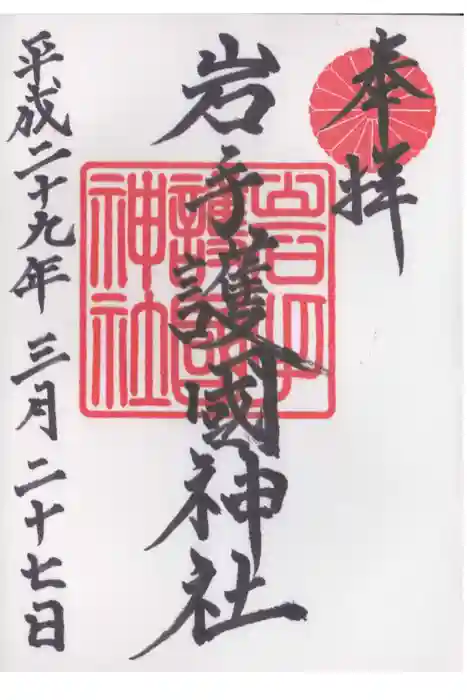 奉拝
岩手護國神社
岩手
護國
神社
平成二十九年 三月 二十七日